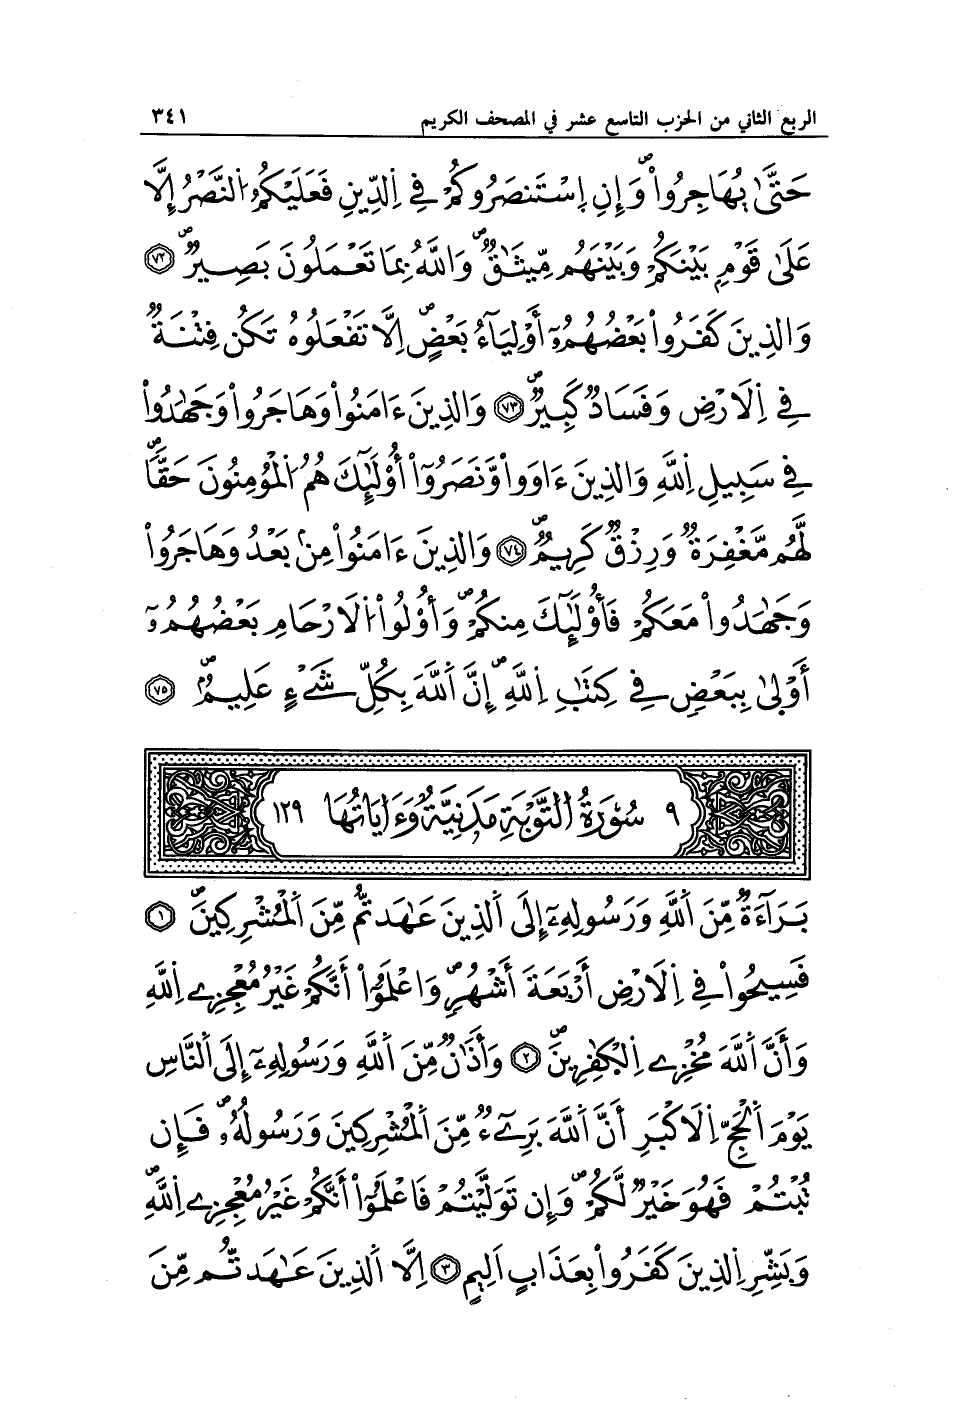 الربع الثاني من الحزب التاسع عشر في المصحف الكريم ٣٤١
حَتَّىٰ يُهَاجِرُواْۖ وَإِنِ اِسْتَنصَرُوكُمْ فِي اِلدِّينِ فَعَلَيْكُمُ اُلنَّصْرُ إِلَّا
عَلَىٰ قَوْمِۭ بَيْنَكُمْ وَبَيْنَهُم مِّيثَٰقٌۖ وَاللَّهُ بِمَا تَعْمَلُونَ بَصِيرٌۖ ٧٢
وَالذِينَ كَفَرُواْ بَعْضُهُمُۥٓ أَوْلِيَآءُ بَعْضٍۖ اِلَّا تَفْعَلُوهُ تَكُن فِتْنَةٌ
فِي اِلَارْضِ وَفَسَادٌ كَبِيرٌۖ ٧٣ وَالذِينَ ءَامَنُواْ وَهَاجَرُواْ وَجَٰهَدُواْ
فِي سَبِيلِ اِللَّهِ وَالذِينَ ءَاوَواْ وَّنَصَرُوٓاْ أُوْلَٰٓئِكَ هُمُ اُلْمُؤْمِنُونَ حَقّاًۖ
لَّهُم مَّغْفِرَةٌ وَرِزْقٌ كَرِيمٌۖ ٧٤ وَالذِينَ ءَامَنُواْ مِنۢ بَعْدُ وَهَاجَرُواْ
وَجَٰهَدُواْ مَعَكُمْ فَأُوْلَٰٓئِكَ مِنكُمْۖ وَأُوْلُواْ اُلَارْحَامِ بَعْضُهُمُۥٓ
أَوْلَىٰ بِبَعْضٍ فِي كِتَٰبِ اِللَّهِۖ إِنَّ اَللَّهَ بِكُلِّ شَيْءٍ عَلِيمٌۖ ٧٥
٩ سُورَةُ التَّوْبَةِ مَدَنِيَّةٌ وَءَايَاتُهَا ١٢٩
بَرَآءَةٌ مِّنَ اَللَّهِ وَرَسُولِهِۦٓ إِلَى اَلذِينَ عَٰهَدتُّم مِّنَ اَلْمُشْرِكِينَۖ ١
فَسِيحُواْ فِي اِلَارْضِ أَرْبَعَةَ أَشْهُرٍۖ وَاعْلَمُوٓاْ أَنَّكُمْ غَيْرُ مُعْجِزِے اِللَّهِ
وَأَنَّ اَللَّهَ مُخْزِے اِلْكَٰفِرِينَۖ ٢ وَأَذَٰنٌ مِّنَ اَللَّهِ وَرَسُولِهِۦٓ إِلَى اَلنَّاسِ
يَوْمَ اَلْحَجِّ اِلَاكْبَرِ أَنَّ اَللَّهَ بَرِےٓءٌ مِّنَ اَلْمُشْرِكِينَ وَرَسُولُهُۥۖ فَإِن
تُبْتُمْ فَهُوَ خَيْرٌ لَّكُمْۖ وَإِن تَوَلَّيْتُمْ فَاعْلَمُوٓاْ أَنَّكُمْ غَيْرُ مُعْجِزِے اِللَّهِۖ
وَبَشِّرِ اِلذِينَ كَفَرُواْ بِعَذَابٍ اَلِيمٍ ٣ اِلَّا اَلذِينَ عَٰهَدتُّم مِّنَ